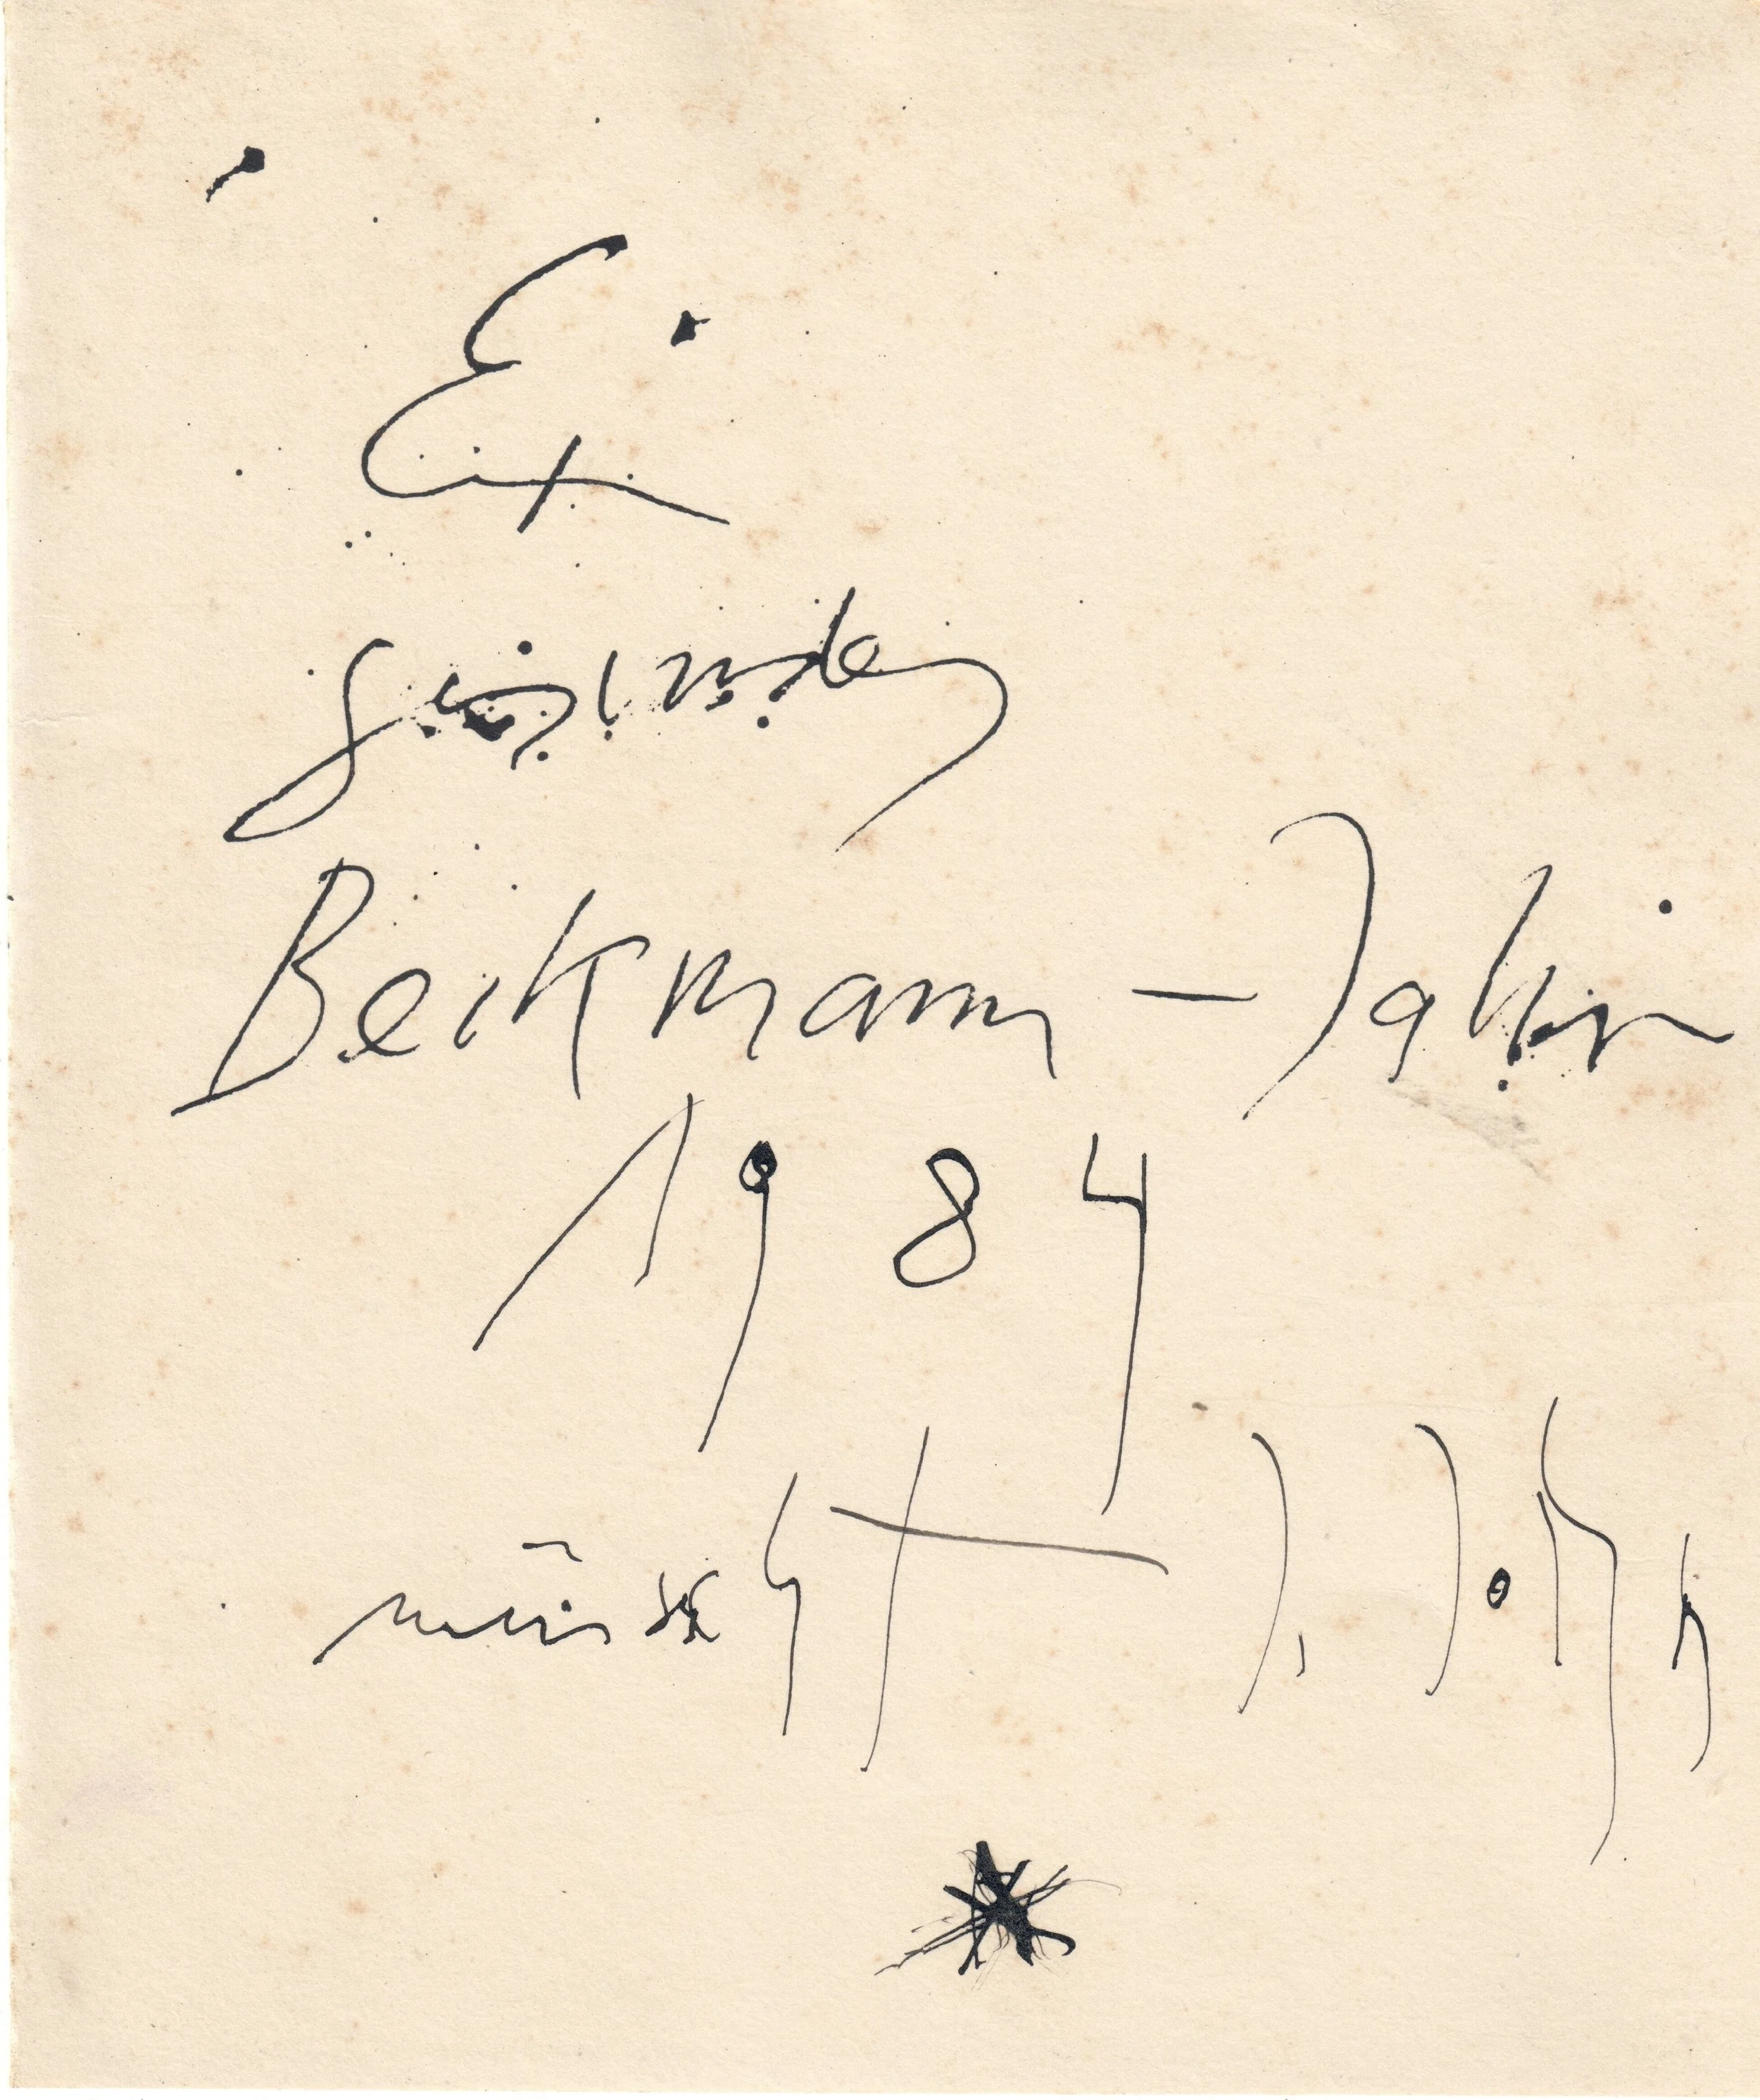 Ein
gesundes
Beckmann – Jahr
1984
wünscht